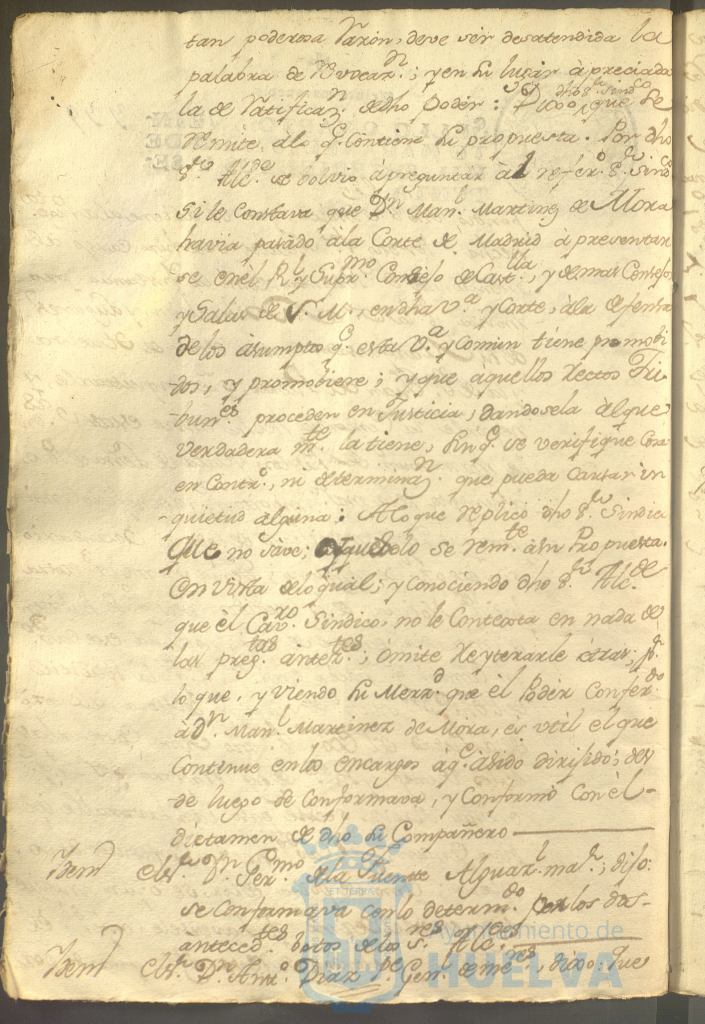 tan poderosa razón, deve ser desatendida la
palabra de Revocar.n; y en su lugar àpreciada
la de ratificaz.n de dho Poder: Y dho S.r Sindco
Dixo, que Se
remite, àlo q.e Contiene su propuesta. Por dho
S.r Alc.de se bolvio àpreguntar àl refer.o S.r Sindco
Si le Constava que D.n Man.l Martinez de Mora
havia pasado àla Corte de Madrid à presentar
se en el R.l y Supr.mo Consejo de Cast.lla, y demas Consejos
y Salas de S. M., en dha V.a y Corte, àla defensa
de los àsumptos q.e esta V.a y Comun tiene promobi
dos, y promobiere; y que àquellos rectos Tri
bun.es proceden en Justicia, dandosela àl que
verdadera m.te la tiene, sin q.e se verifique Cosa
en Contr.o, ni determinaz.n que pueda Causar in
quietud alguna: A lo que replicó dho S.r Sindico
Que no save; se rem.te à su Propuesta.
En vista de lo qual; y conociendo dho S.r Alc.de
que èl Cav.ro Sindico, no le Contexta en nada de
las preg.tas ànter.res; omite reyterarle òtras; p.r
lo que, y viendo su Merz.d que èl Podèr Confer.do
à D.n Man.l Martinez de Mora, ès util el que
Continue en los encargos à q.e à sido dirijido; des
de luego se Conformava, y Conformò Con èl
dictamen de dho su Compañero
Item el S.r D.n Ger.mo de la Fuente Alguaz.l ma.r; dijo:
se Conformava con lo determ.do por los dos
anteced.tes votos de los S.res Alc.des
Item el S.r D.n Ant.o Diaz, dixo: Que
Ayuntamiento de
HUELVA